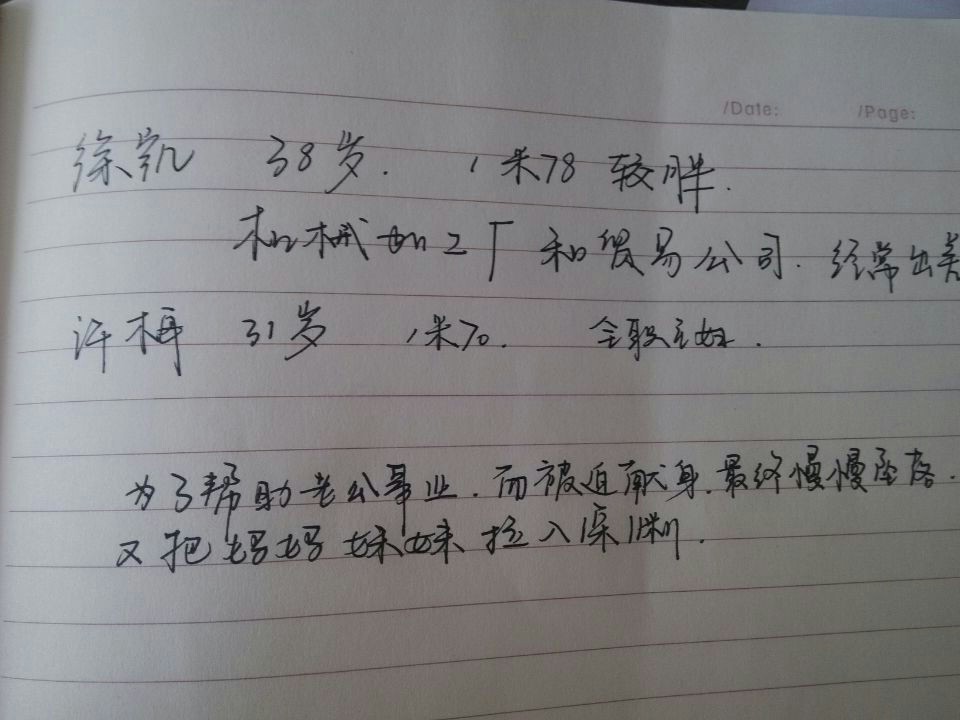 /Date: /Page:
徐凯 38岁. 1米78 较胖.
机械加工厂和贸易公司. 经常出差
许梅 31岁 1米70. 全职主妇.
为了帮助老公事业.而被迫献身.最终慢慢坠落.
又把妈妈妹妹拉入深渊.